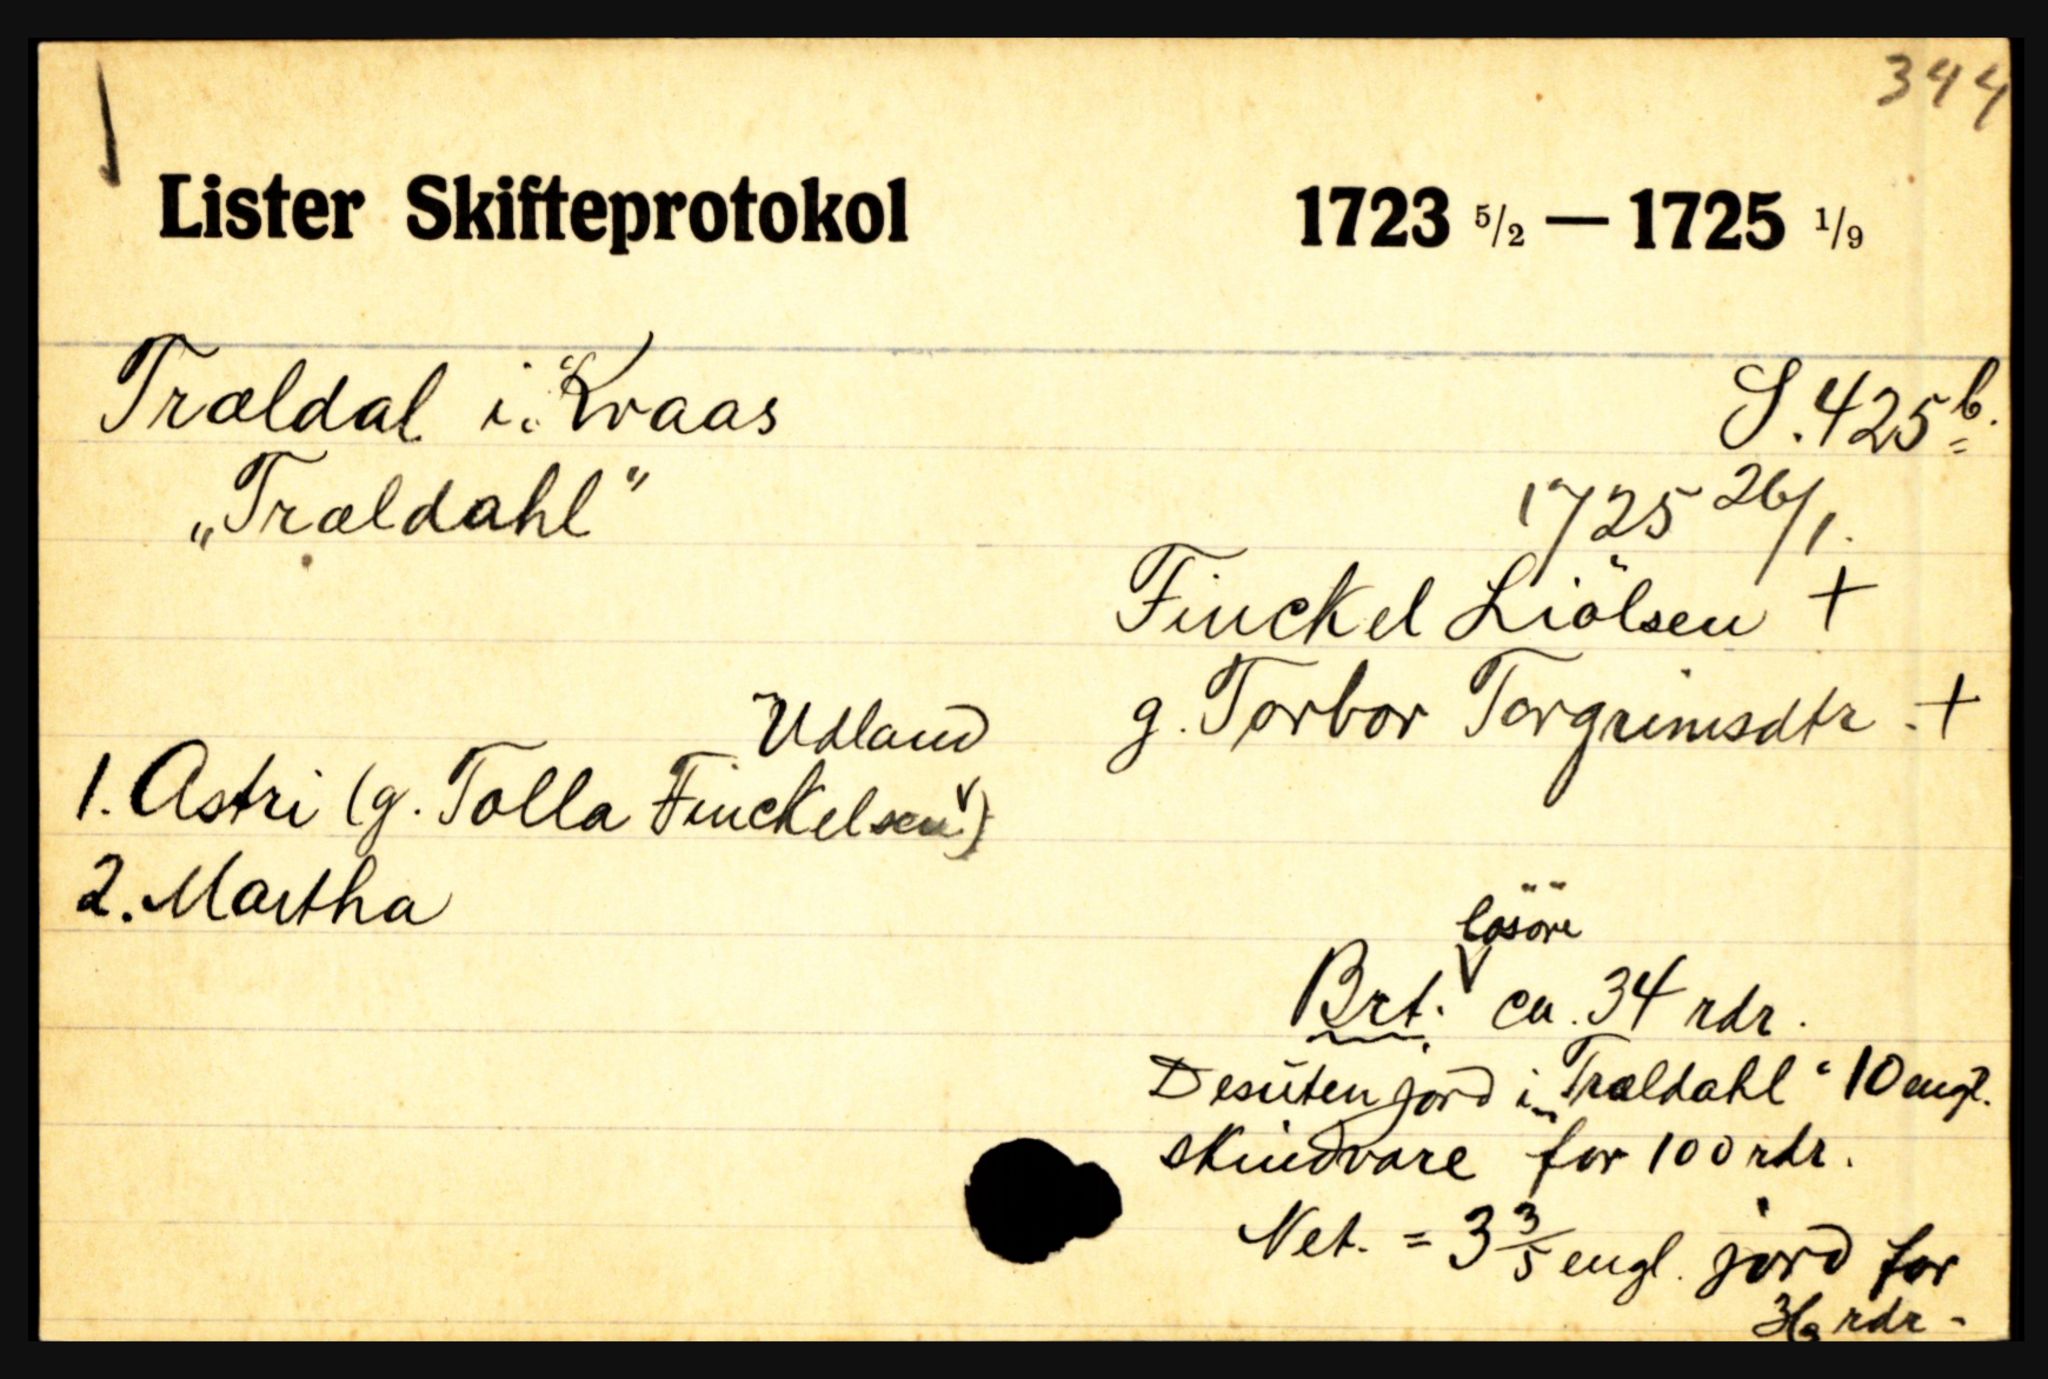 344
Lister Skifteprotokol 1723 5/2 — 1725 1/9
Træeldal i „Kvaas“ S. 425 b.
„Træeldahl“
1725 26/1.
Finckel Liölsen +
g. Torbor Torgrimsdtr. +
Udland
1. Astri (g. Tolla Finckelsen)
2. Martha
lösöre
Brt. ca. 34 rdr.
Desuten jord i „Træeldahl“ 10 engl.
skindvare for 100 rdr.
Net. = 3 3/5 engl. jord for
rdr.